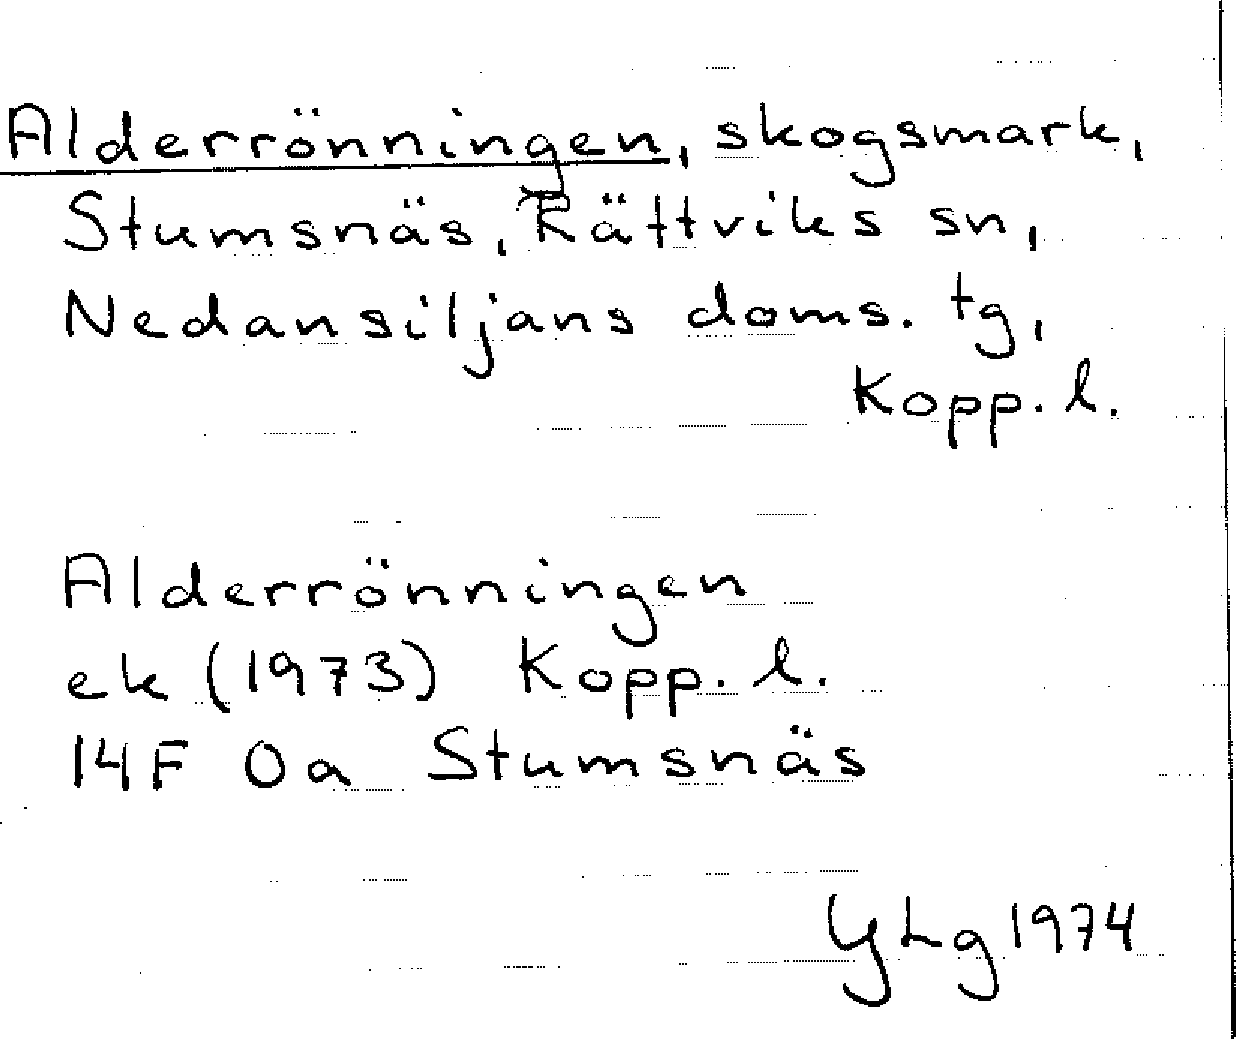 Alderrönningen, skogsmark,
Stumsnäs, Rättviks sn,
Nedansiljans doms. tg,
Kopp. l.
Alderrönningen
ek (1973) Kopp. l.
14F 0a Stumsnäs
YLg 1974